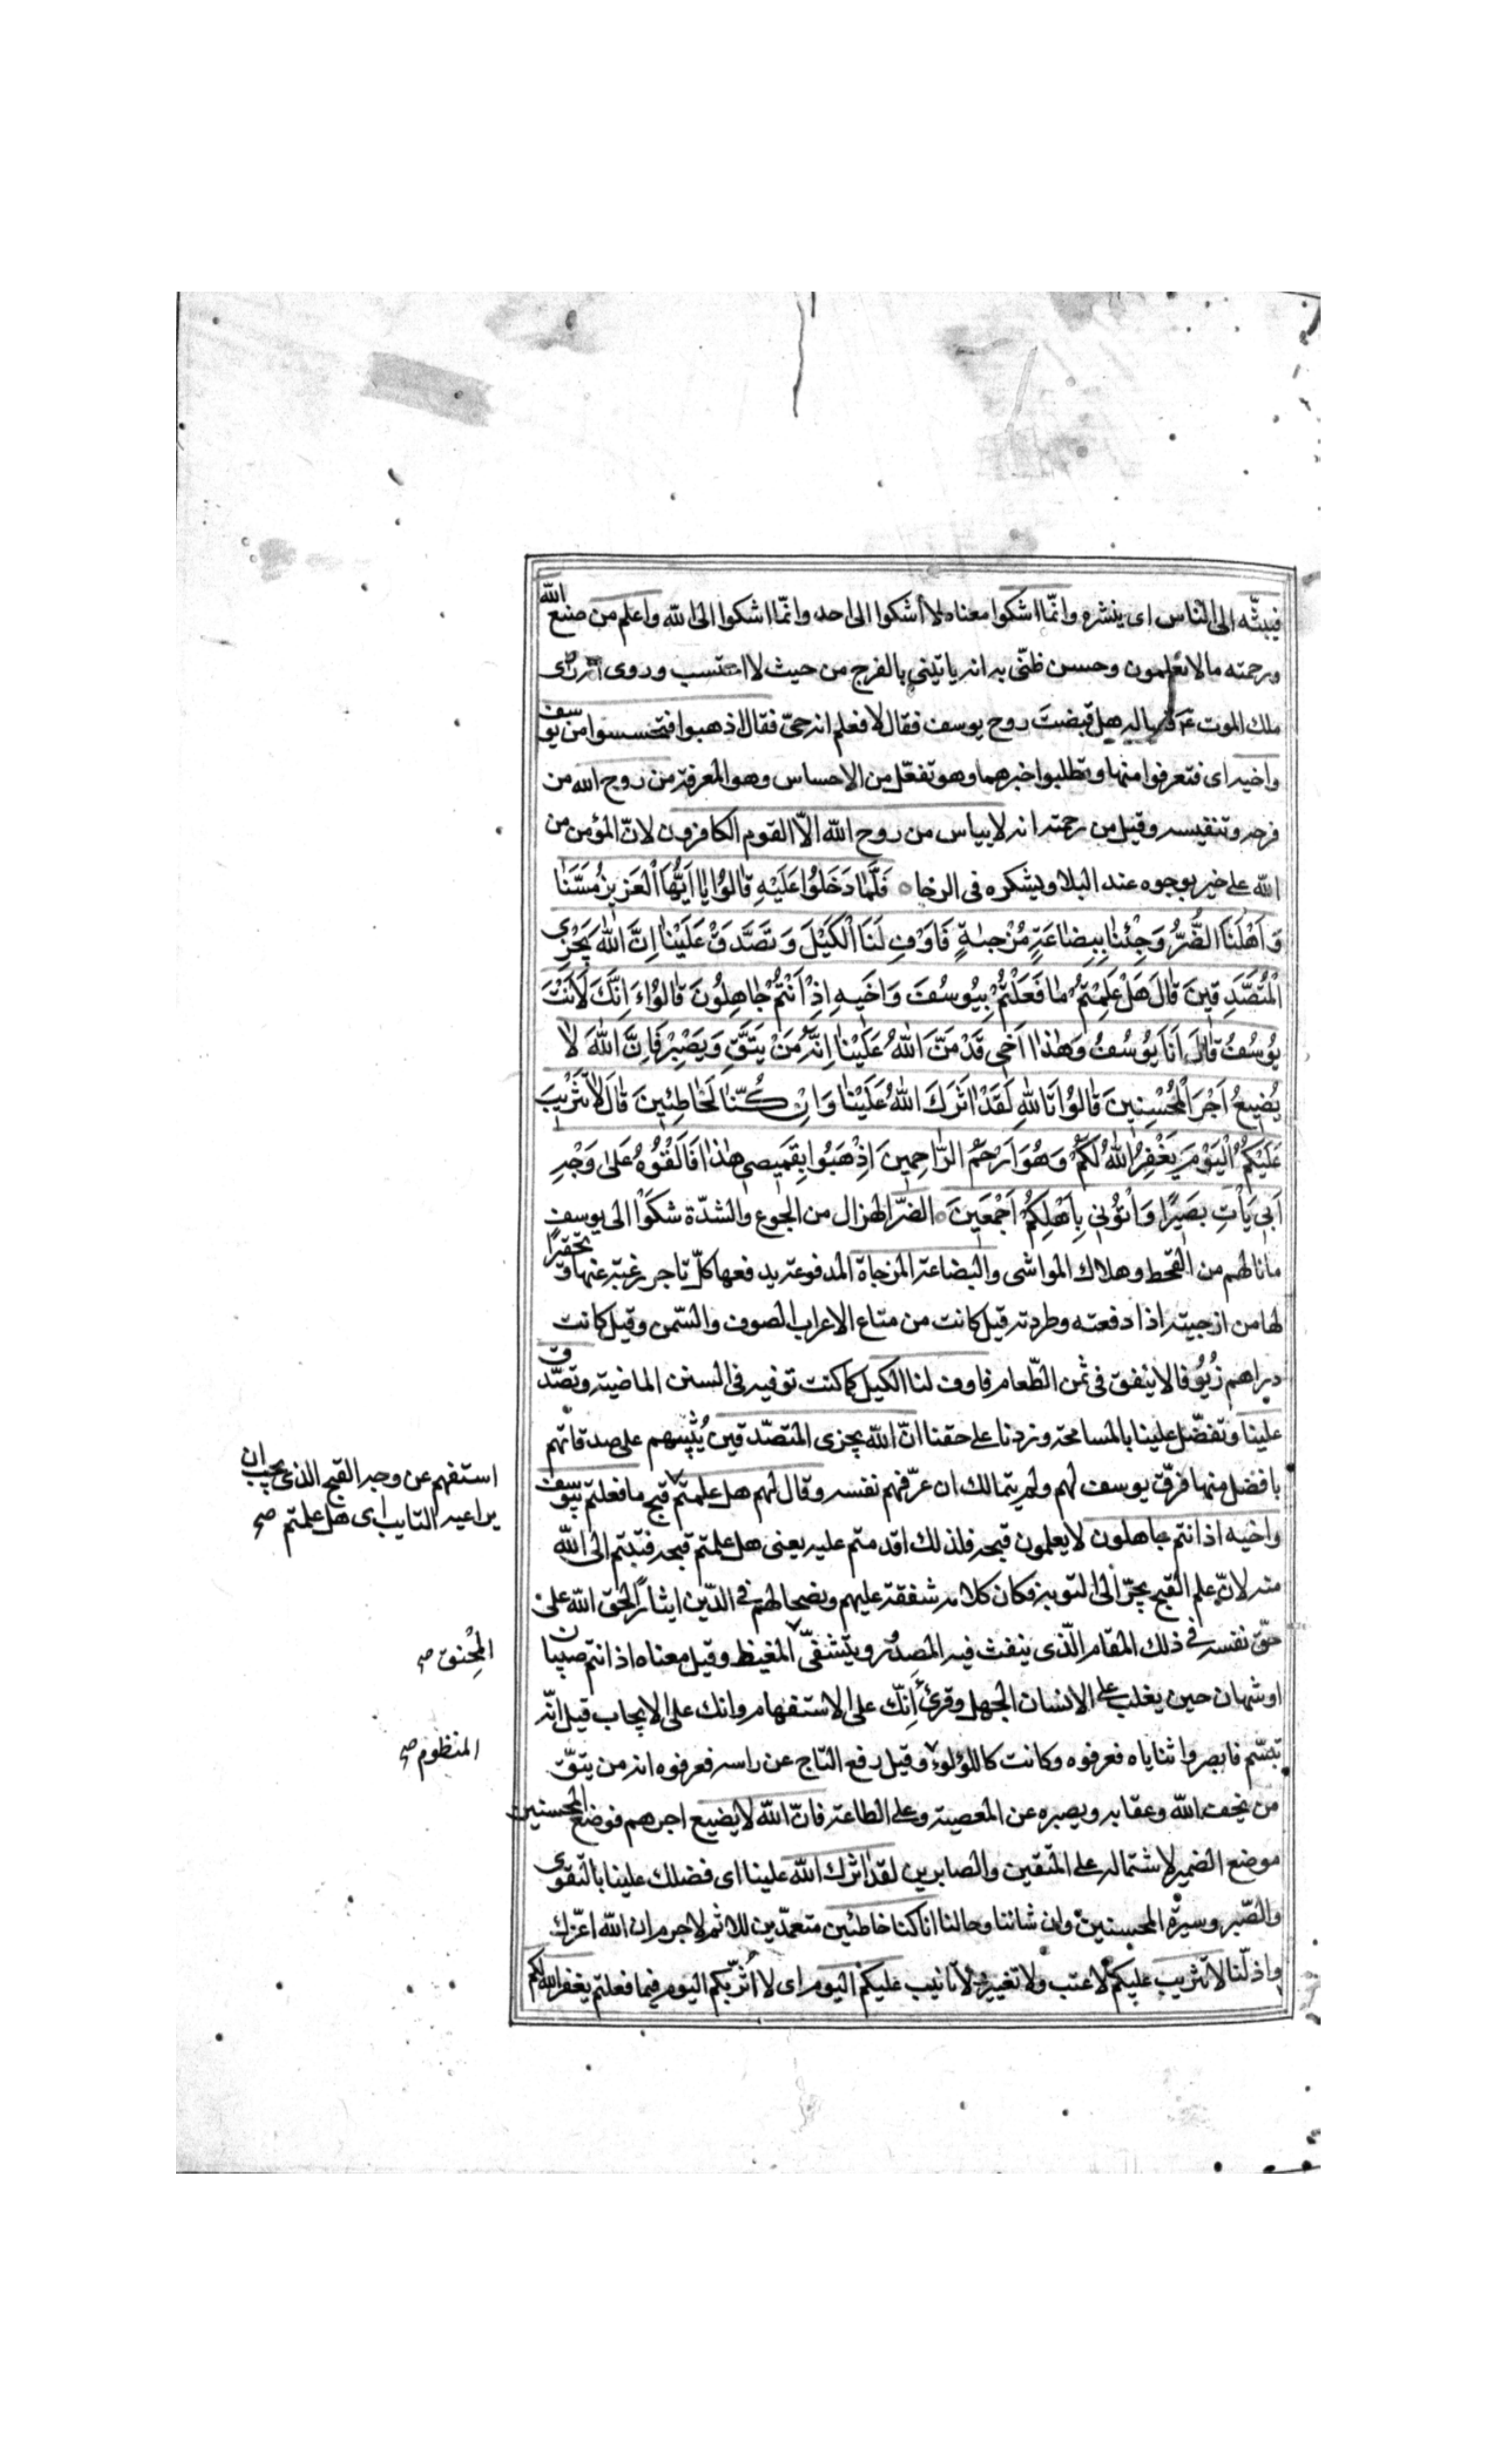 فيبثّه الى الناس اى ينشره وانّما اشكوا معناه لا أشكوا الى احد وانّما اشكوا الى الله واعلم من صنع الله
ورحمته ما لا تعلمون وحسن ظنّى به انه ياتينى بالفرج من حيث لا احتسب وروى انه راى
ملك الموت فساله هل قبضت روح يوسف فقال لا فعلم انه حىّ فقال اذهبوا فتحسسوا من يوسف
واخيه اى فتعرفوا منها وتطلبوا خبرهما وهو تفعّل من الاحساس وهو المعرفة من روح الله من
فرجه وتنفيسه وقيل من رحمته انه لا يياس من روح الله الّا القوم الكافرون لانّ المؤمن من
الله على خير يوجوه عند البلا ويشكره فى الرخا ٥ فَلَمَّا دَخَلُوا عَلَيْهِ قٰالُوا يٰا اَيُّهَا الْعَزِيزُ مَسَّنٰا
وَاَهْلَنَا الضُّرُّ وَجِئْنٰا بِبِضٰاعَةٍ مُزْجٰيةٍ فَاَوْفِ لَنَا الْكَيْلَ وَتَصَدَّقْ عَلَيْنٰا اِنَّ اللّٰهَ يَجْزِى
الْمُتَصَدِّقِينَ قٰالَ هَلْ عَلِمْتُمْ مٰا فَعَلْتُمْ بِيُوسُفَ وَاَخِيهِ اِذْ اَنْتُمْ جٰاهِلُونَ قٰالُوا ءَاِنَّكَ لَاَنْتَ
يُوسُفُ قٰالَ اَنَا يُوسُفُ وَهٰذٰا اَخِى قَدْ مَنَّ اللّٰهُ عَلَيْنٰا اِنَّهُ مَنْ يَتَّقِ وَيَصْبِرْ فَاِنَّ اللّٰهَ لٰا
يُضِيعُ اَجْرَ الْمُحْسِنِينَ قٰالُوا تَاللّٰهِ لَقَدْ اٰثَرَكَ اللّٰهُ عَلَيْنٰا وَاِنْ كُنّٰا لَخٰاطِئِينَ قٰالَ لٰا تَثْرِيبَ
عَلَيْكُمُ الْيَوْمَ يَغْفِرُ اللّٰهُ لَكُمْ وَهُوَ اَرْحَمُ الرّٰاحِمِينَ اِذْهَبُوا بِقَمِيصِى هٰذٰا فَاَلْقُوهُ عَلىٰ وَجْهِ
اَبِى يَاْتِ بَصِيرًا وَاْتُونِى بِاَهْلِكُمْ اَجْمَعِينَ ٥ الضرّ الهزال من الجوع والشدّة شكوا الى يوسف
ما نالهم من القحط وهلاك المواشى والبضاعة المزجاة المدفوعة يدفعها كلّ تاجر رغبة عنها وتحقيرًا
لها من ازجيته اذا دفعته وطردته قيل كانت من متاع الاعراب الصوف والسّمن وقيل كانت
دراهم زُيُوفا لا ينفق فى ثمن الطّعام فاوف لنا الكيل كما كنت توفيه فى السنن الماضية وتصدّق
علينا وتفضّل علينا بالمسامحة وزدنا على حقنا انّ الله يجزى المتصّدقين يُثيبهم على صدقاتهم
بافضل منها فرقّ يوسف لهم ولم يتمالك ان عرّفهم نفسه وقال لهم هل علمتم قبح ما فعلتم بيوسف
استفهم عن وجه القبح الذى يجب ان
يراعيه التايب اى هل علمتم صح
واخيه اذ انتم جاهلون لا يعلمون قبحه فلذلك اقدمتم عليه يعنى هل علمتم قبحه فتبتم الى الله
منه لانّ علم القبح يجرّ الى التوبة فكان كلامه شفقة عليهم ونصحا لهم فى الدّين ايثارًا لحق الله على
حقّ نفسه فى ذلك المقام الّذى ينفث فيه المصدُور ويتشفىّ المغيظ وقيل معناه اذ انتم صبيان
المُحْنق صح
او شبان حين يغلب على الانسان الجهل وقرئ أإنّك على الاستفهام وانك على الايجاب قيل انّه
تبسّم فابصروا ثناياه فعرفوه وكانت كاللؤلؤ وقيل رفع التاج عن راسه فعرفوه انه من يتّق
المنظوم صح
من يخف الله وعقابه ويصبر عن المعصية وعلى الطاعة فانّ الله لا يضيع اجرهم فوضع المحسنين
موضع الضمير لاشتماله على المتّقين والصابرين لقد اثرك الله علينا اى فضلك علينا بالتّقوى
والصّبر وسيرة المحسنين وان شاننا وحالنا انا كنا خاطئين متعمدّين للاثم لا جرم ان الله اعزّك
واذلّنا لا تثريب عليكم لا عتب ولا تعيير ولا تانيب عليكم اليوم اى لا اُثرّبكم اليوم فيما فعلتم يغفر الله لكم